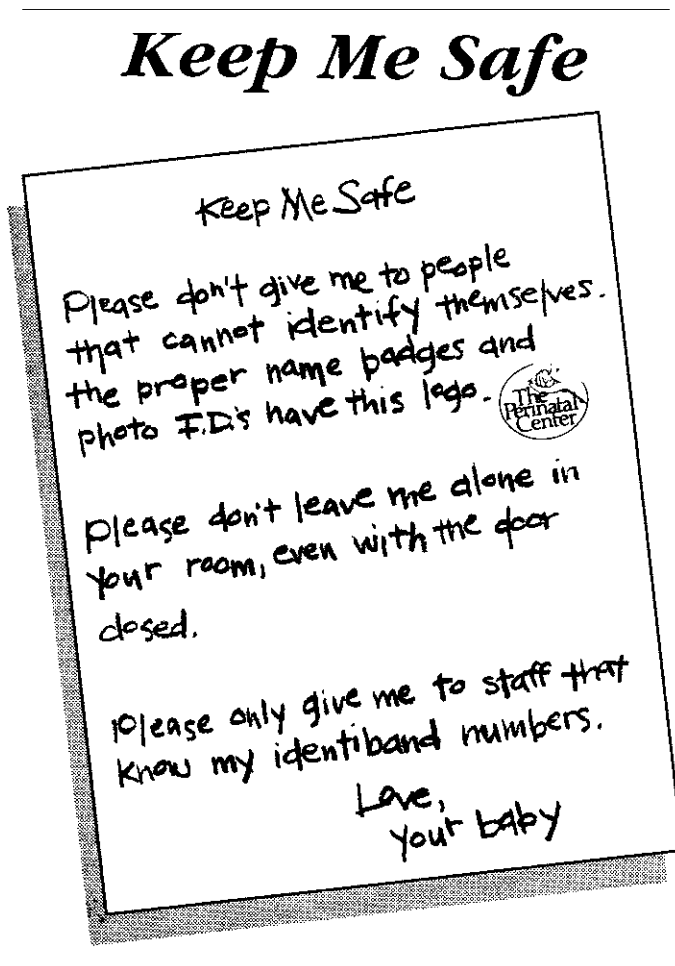 Keep Me Safe
Keep Me Safe
Please don't give me to people
that cannot identify themselves.
the proper name badges and
photo I.D.'s have this logo.
The
Perinatal
Center
Please don't leave me alone in
your room, even with the door
closed.
Please only give me to staff that
know my identiband numbers.
Love,
your baby